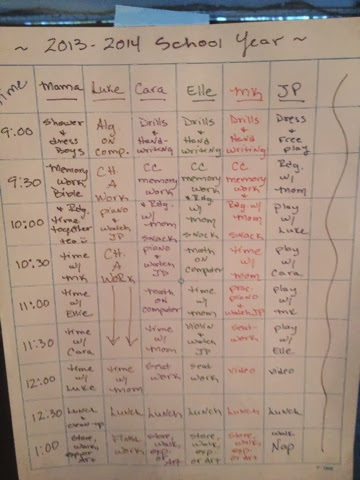 ~ 2013-2014 School Year ~
Time Mama Luke Cara Elle MK JP
9:00 Shower & dress Boys Alg on comp. Drills & Hand-writing Drills & Hand-writing Drills & Hand writing Dress & Free play
9:30 Memory Work Bible CH A Work CC memory work CC memory work CC memory work Rdg. w/ mom
10:00 & Rdg. time together piano & watch JP & Rdg. w/ mom snack & Rdg w/ mom snack & Rdg w/ mom snack play w/ Luke
10:30 time w/ MK CH A Work piano & watch JP math on computer time w/ mom play w/ Cara
11:00 time w/ Ellie math on computer time w/ mom piano & watch JP play w/ MK
11:30 time w/ Cara time w/ mom Violin & watch JP seat-work play w/ Elle
12:00 time w/ Luke time w/ mom seat work seat work video video
12:30 Lunch & clean-up Lunch Lunch Lunch Lunch Lunch
1:00 store, walk, exp or Art work store, walk, exp. or Art store, walk, exp. or Art store, walk, exp. or Art walk Nap